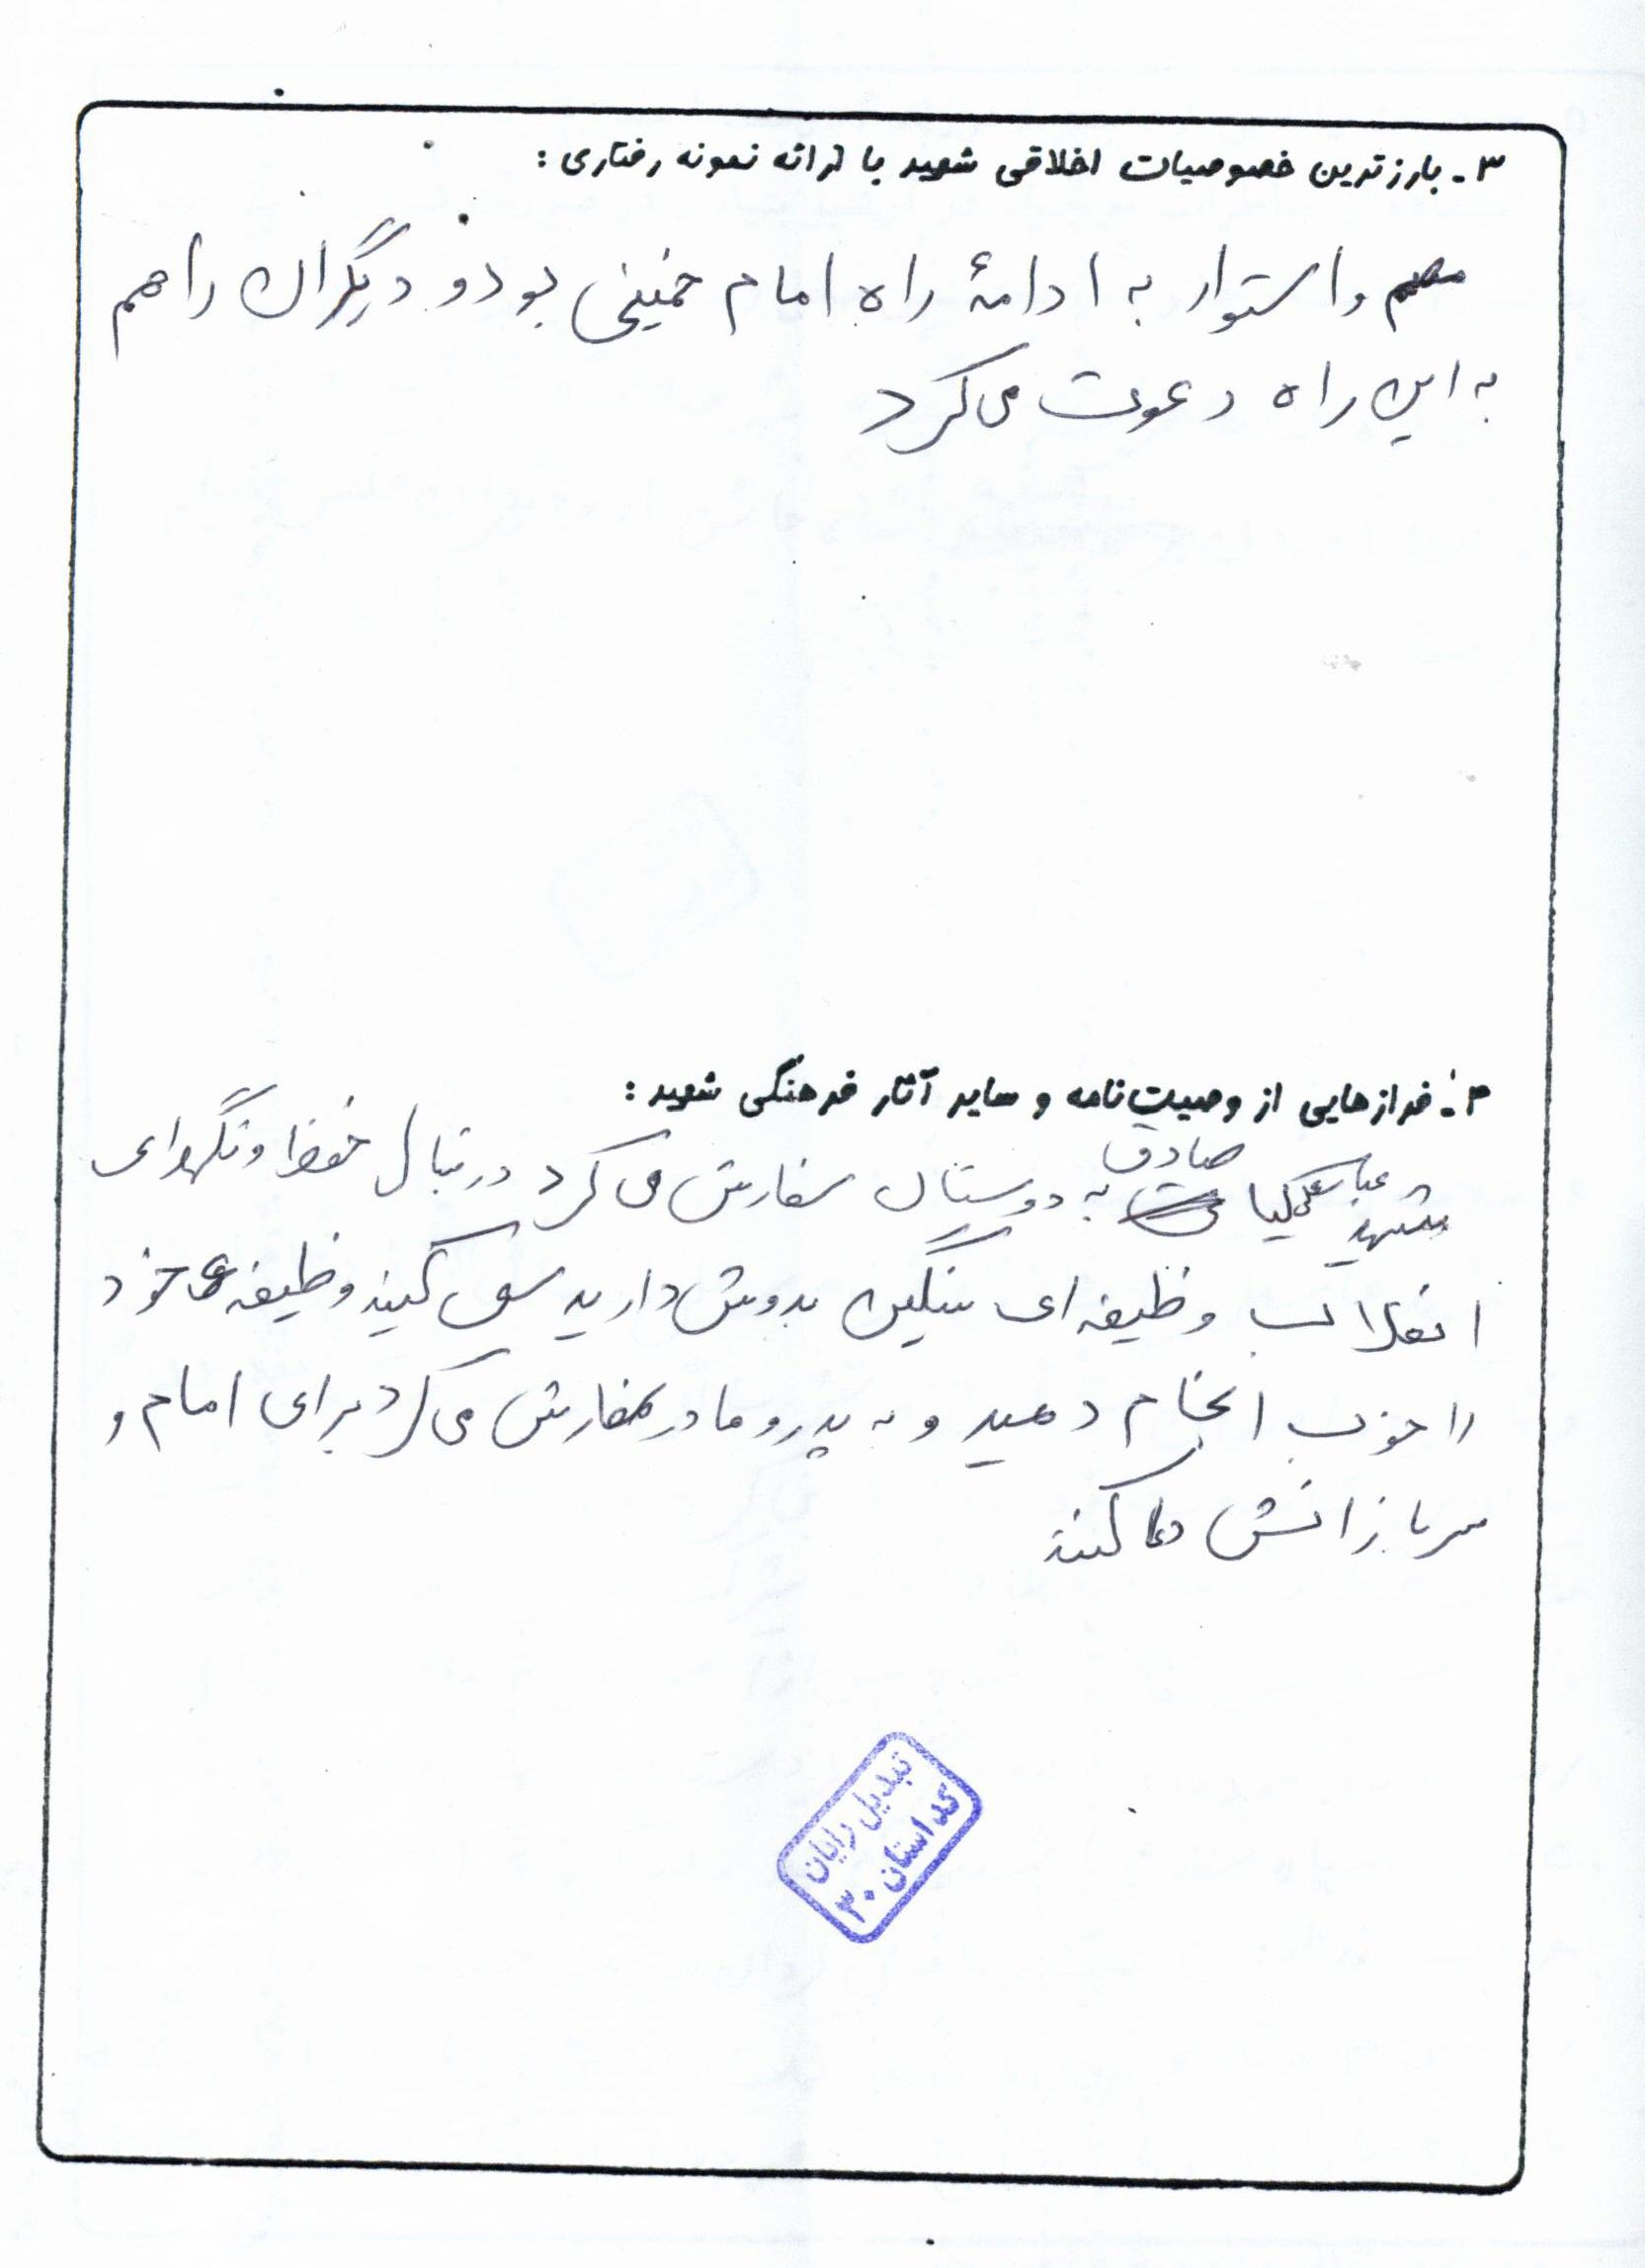 ۳- بارزترین خصوصیات اخلاقی شهید با ارائه نمونه رفتاری:
مصمم و استوار به ادامهٔ راه امام خمینی بود و دیگران را هم
به این راه دعوت می‌کرد
۴- فرازهایی از وصیت‌نامه و سایر آثار فرهنگی شهید:
شهید عباسعلی کیا صادق به دوستان سفارش می‌کرد در قبال حفظ و نگهداری
انقلاب وظیفه‌ای سنگین بدوش دارید سعی کنید وظیفه خود
را خوب انجام دهید و به پدر و مادر سفارش می‌کرد برای امام و
سربازانش دعا کنند
تبدیل رایان
کد استان ۳۰